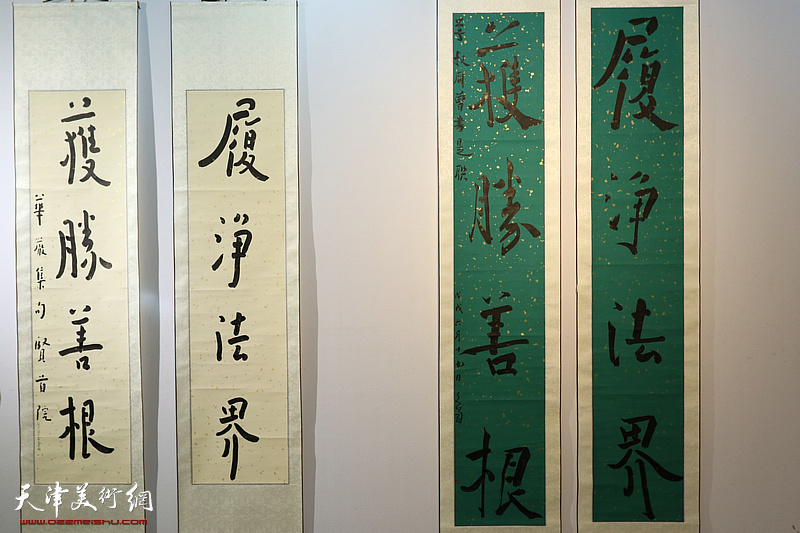 履淨法界
獲勝善根
華嚴集句 賢首院
履淨法界
獲勝善根
天津美術網